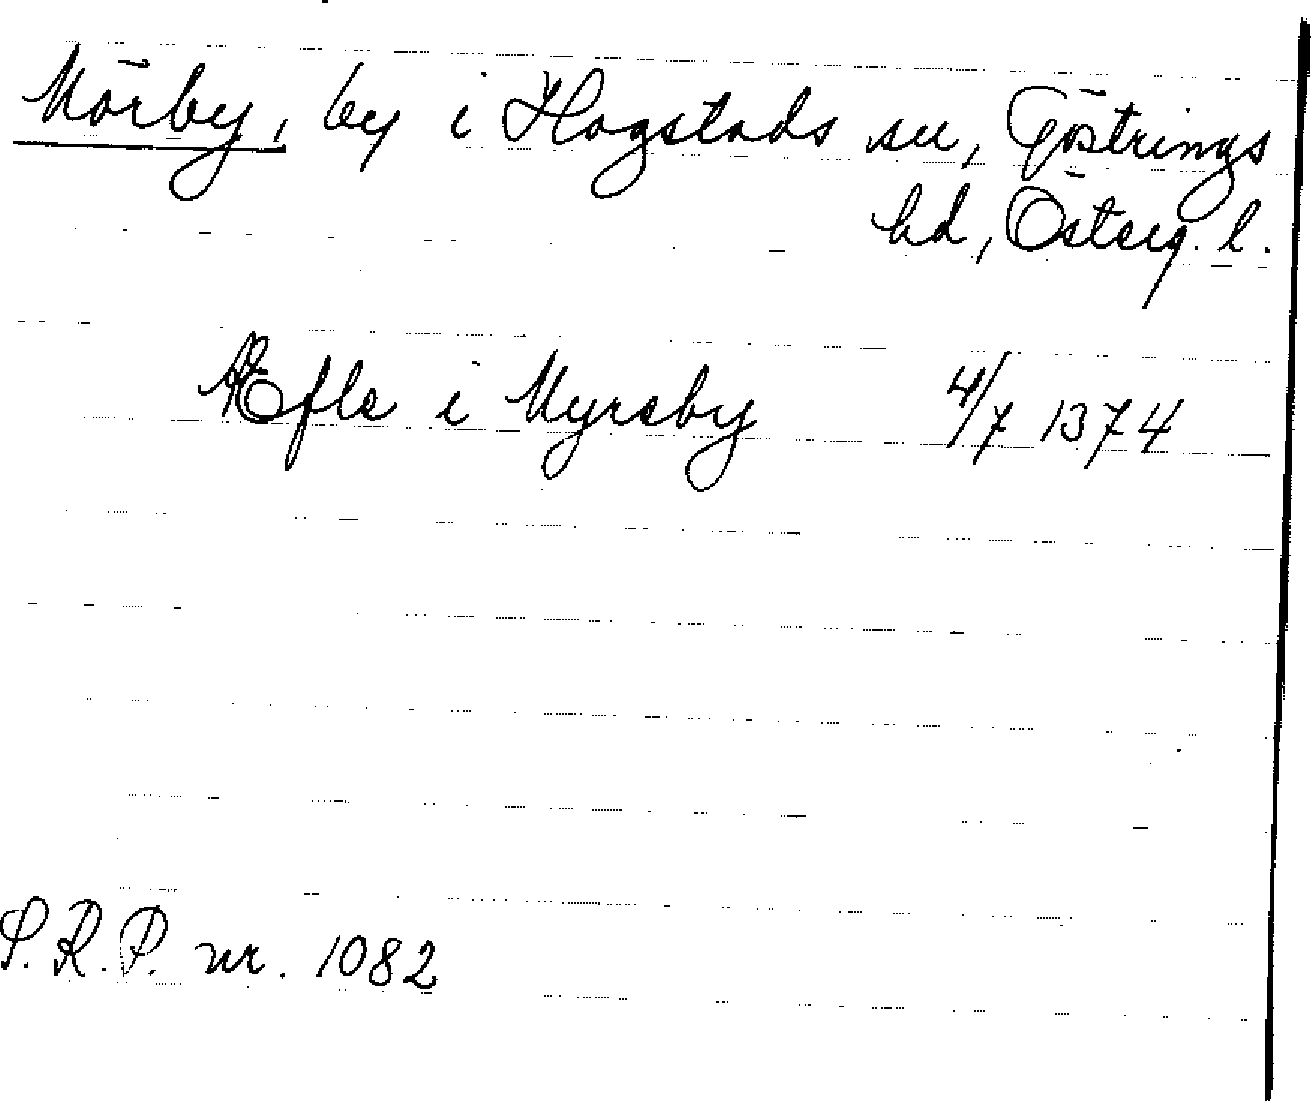 Mörby, by i Hogstads sn, Göstrings
hd, Östерg. l.
Æfls i Myrsby 4/7 1374
S.R.P. nr. 1082